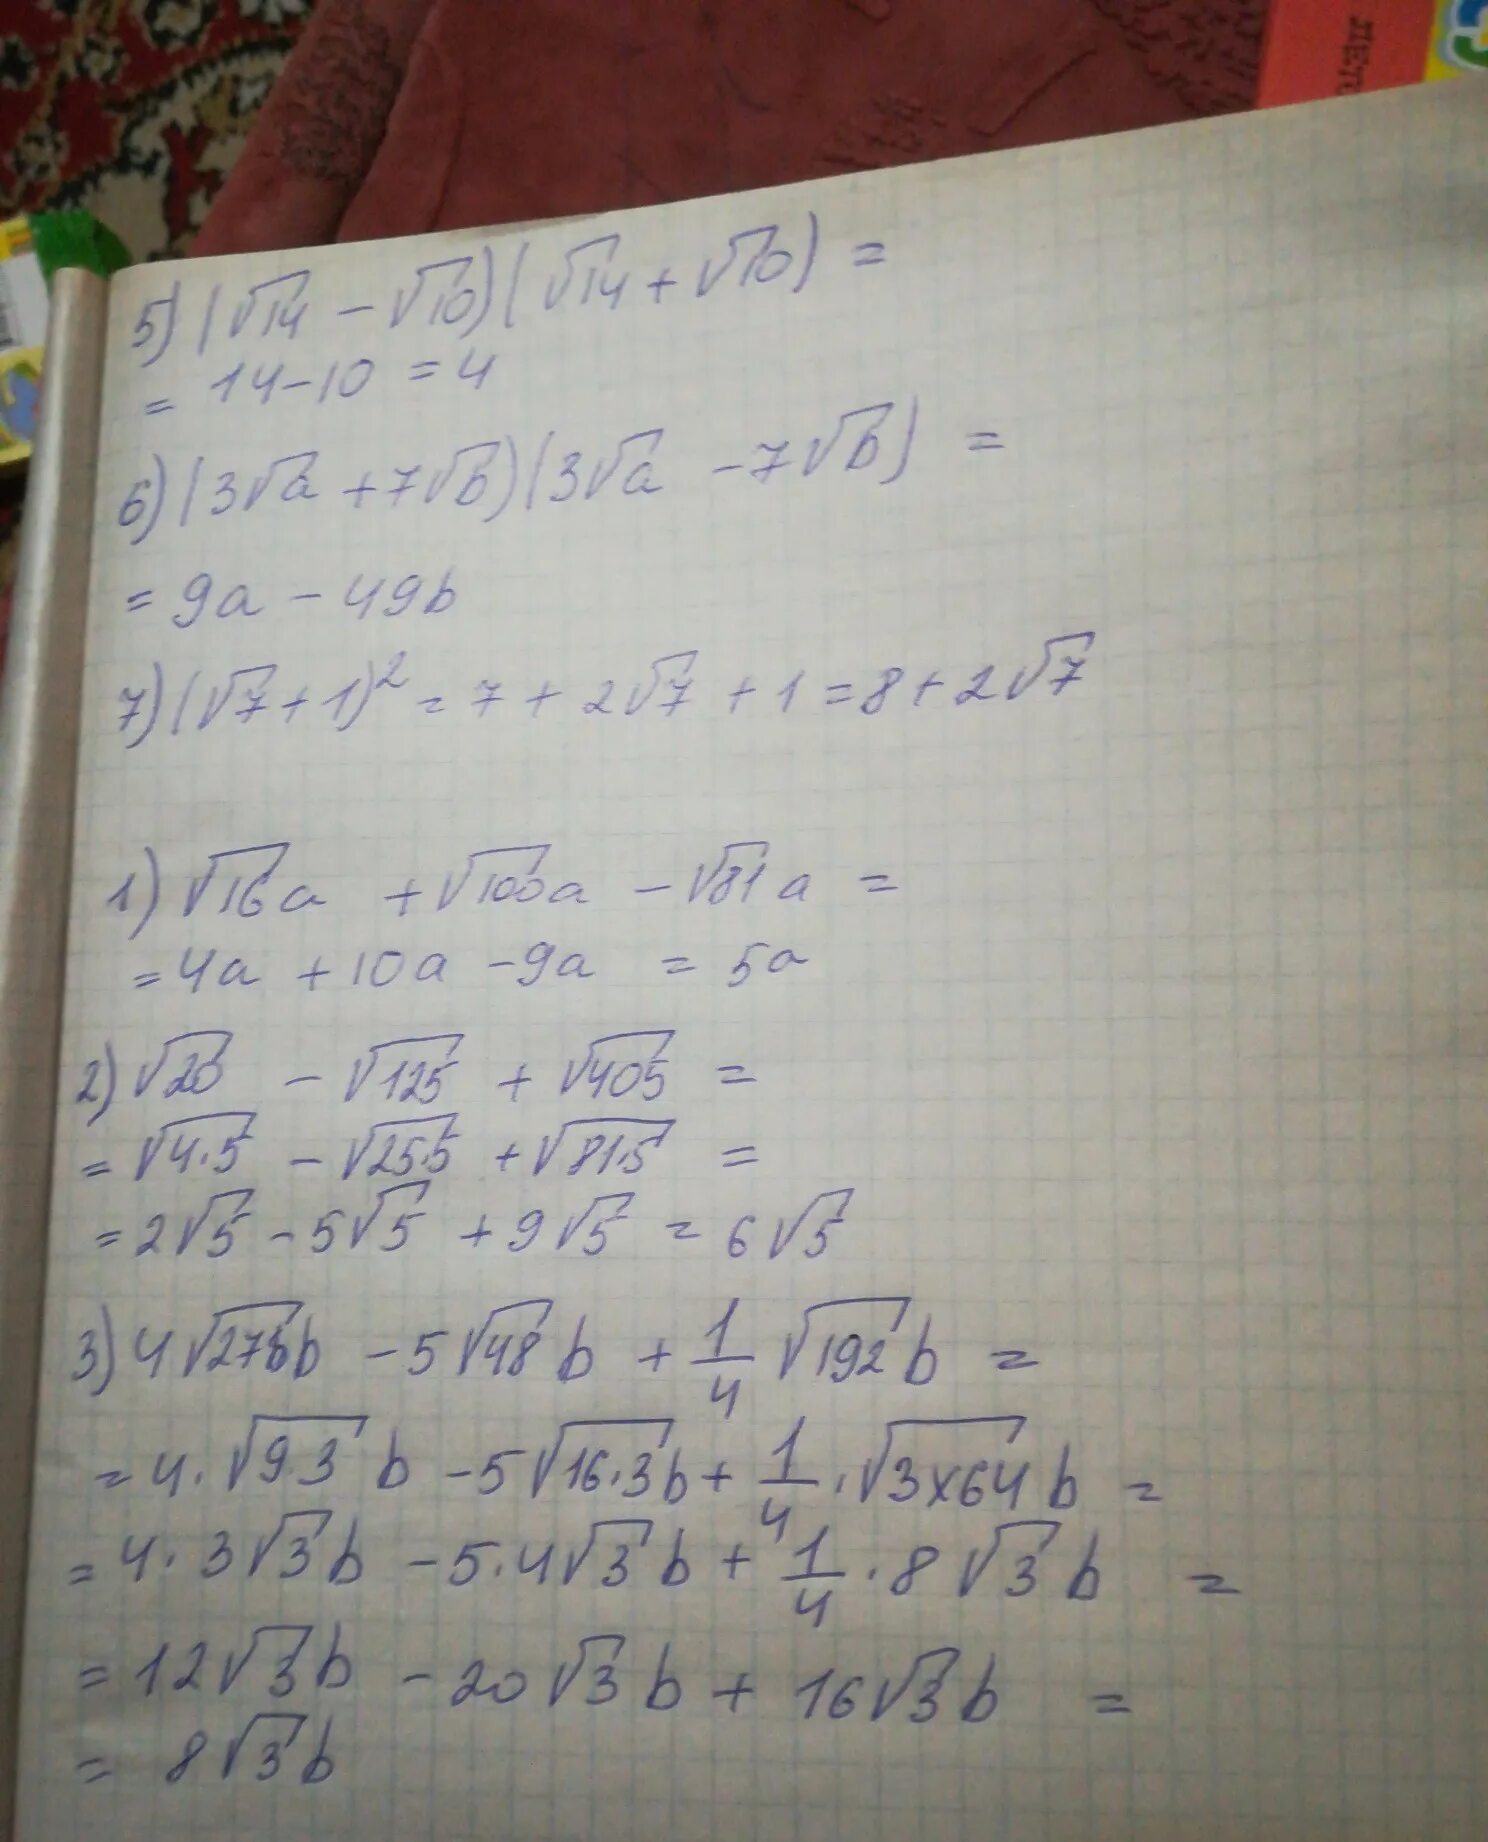 ЛЕТО
5) (√14 − √10)(√14 + √10) =
= 14−10 = 4
6) (3√a + 7√b)(3√a − 7√b) =
= 9a − 49b
7) (√7 + 1)² = 7 + 2√7 + 1 = 8 + 2√7
1) √16a + √100a − √81a =
= 4a + 10a − 9a = 5a
2) √20 − √125 + √405 =
= √4·5 − √25·5 + √81·5 =
= 2√5 − 5√5 + 9√5 = 6√5
3) 4√27b − 5√48b + 1/4 √192b =
= 4·√9·3 b − 5√16·3 b + 1/4 · √3×64 b =
= 4·3√3 b − 5·4√3 b + 1/4 · 8√3 b =
= 12√3 b − 20√3 b + 16√3 b =
= 8√3 b